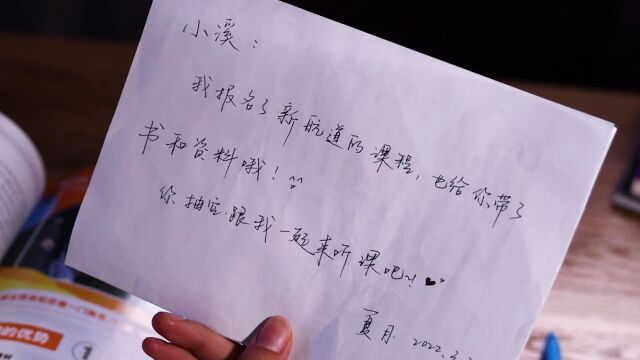 小溪：
我报名了新航道的课程，也给你带了
书和资料哦！^^
你抽空跟我一起来听课吧~！♥♥
夏月 2022.3.
的优势
1